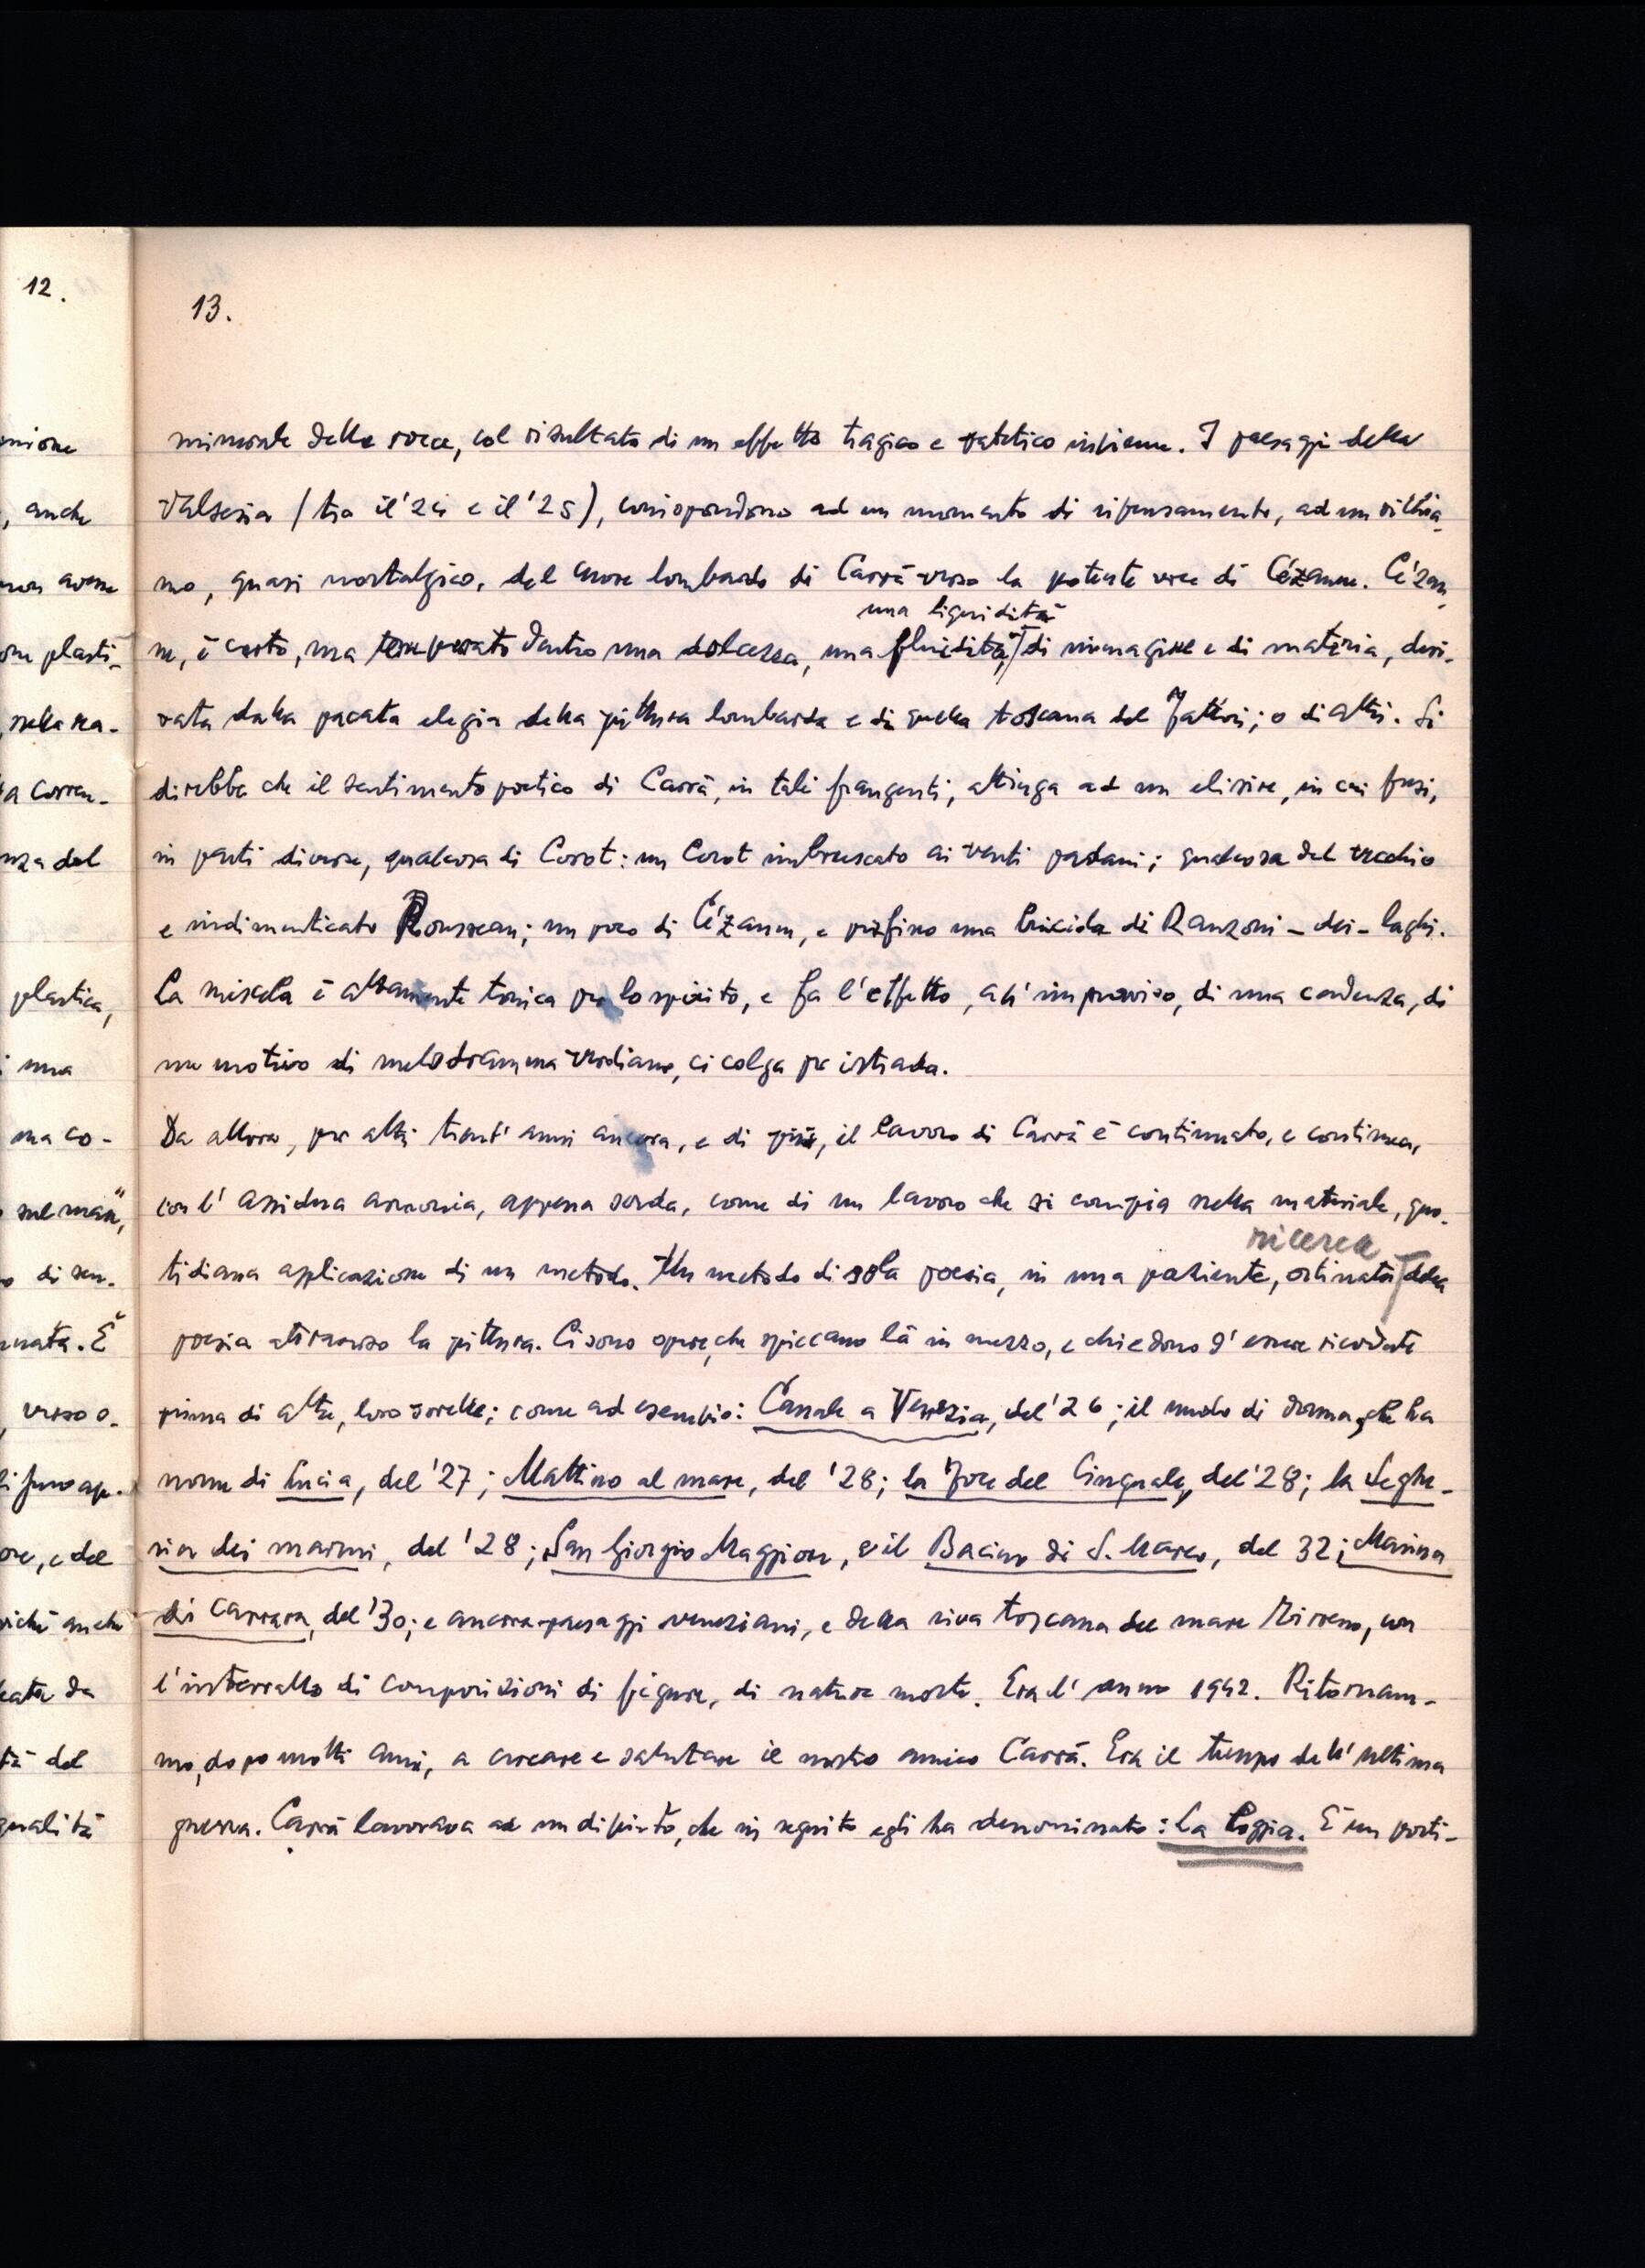 12.
nione
, anche
non avesse
one plasti-
, nella sea-
a corren-
nza del
plastica,
i una
ma co-
sul mare",
o di sen-
nata. È
verso o-
ore, e del
oiché anche
cata da
tà del
qualità
13.
minerale delle rocce, col risultato di un effetto tragico e patetico insieme. I paesaggi della
Valsesia (tra il '24 e il '25), corrispondono ad un momento di ripensamento, ad un richia-
mo, quasi nostalgico, del cuore lombardo di Carrà verso la potente voce di Cézanne. Cézan-
una liquidità
ne, è certo, ma temperato dentro una dolcezza, una fluidità, di immagine e di materia, deri-
vata dalla pacata elegia della pittura lombarda e di quella toscana del Fattori; o di altri. Si
direbbe che il sentimento poetico di Carrà, in tali frangenti, attinga ad un elisire, in cui fusi,
in parti diverse, qualcosa di Corot: un Corot imbruscato ai venti padani; qualcosa del vecchio
e indimenticato Rousseau; un poco di Cézanne, e perfino una briciola di Ranzoni - dei - laghi.
La miscela è altamente tonica per lo spirito, e fa l'effetto, all'improvviso, di una cadenza, di
un motivo di melodramma verdiano, ci colga per istrada.
Da allora, per altri trent'anni ancora, e di più, il lavoro di Carrà è continuato, e continua,
con l'assidua armonia, appena sorda, come di un lavoro che si compia nella materiale, quo-
ricerca
tidiana applicazione di un metodo. Un metodo di sola poesia, in una paziente, ostinata della
poesia attraverso la pittura. Ci sono opere, che spiccano là in mezzo, e chiedono d'essere ricordate
prima di altre, loro sorelle; come ad esempio: Canale a Venezia, del '26; il nudo di donna, che ha
nome di Lucia, del '27; Mattino al mare, del '28; la Foce del Cinquale, del '28; la Seghe-
ria dei marmi, del '28; San Giorgio Maggiore, e il Bacino di S. Marco, del 32; Marina
di Carrara, del '30; e ancora paesaggi veneziani, e della riva toscana del mare Tirreno, con
l'intervallo di composizioni di figure, di nature morte. Era l'anno 1942. Ritornam-
mo, dopo molti anni, a cercare e salutare il nostro amico Carrà. Era il tempo dell'ultima
guerra. Carrà lavorava ad un dipinto, che in seguito egli ha denominato: La Loggia. È un porti-